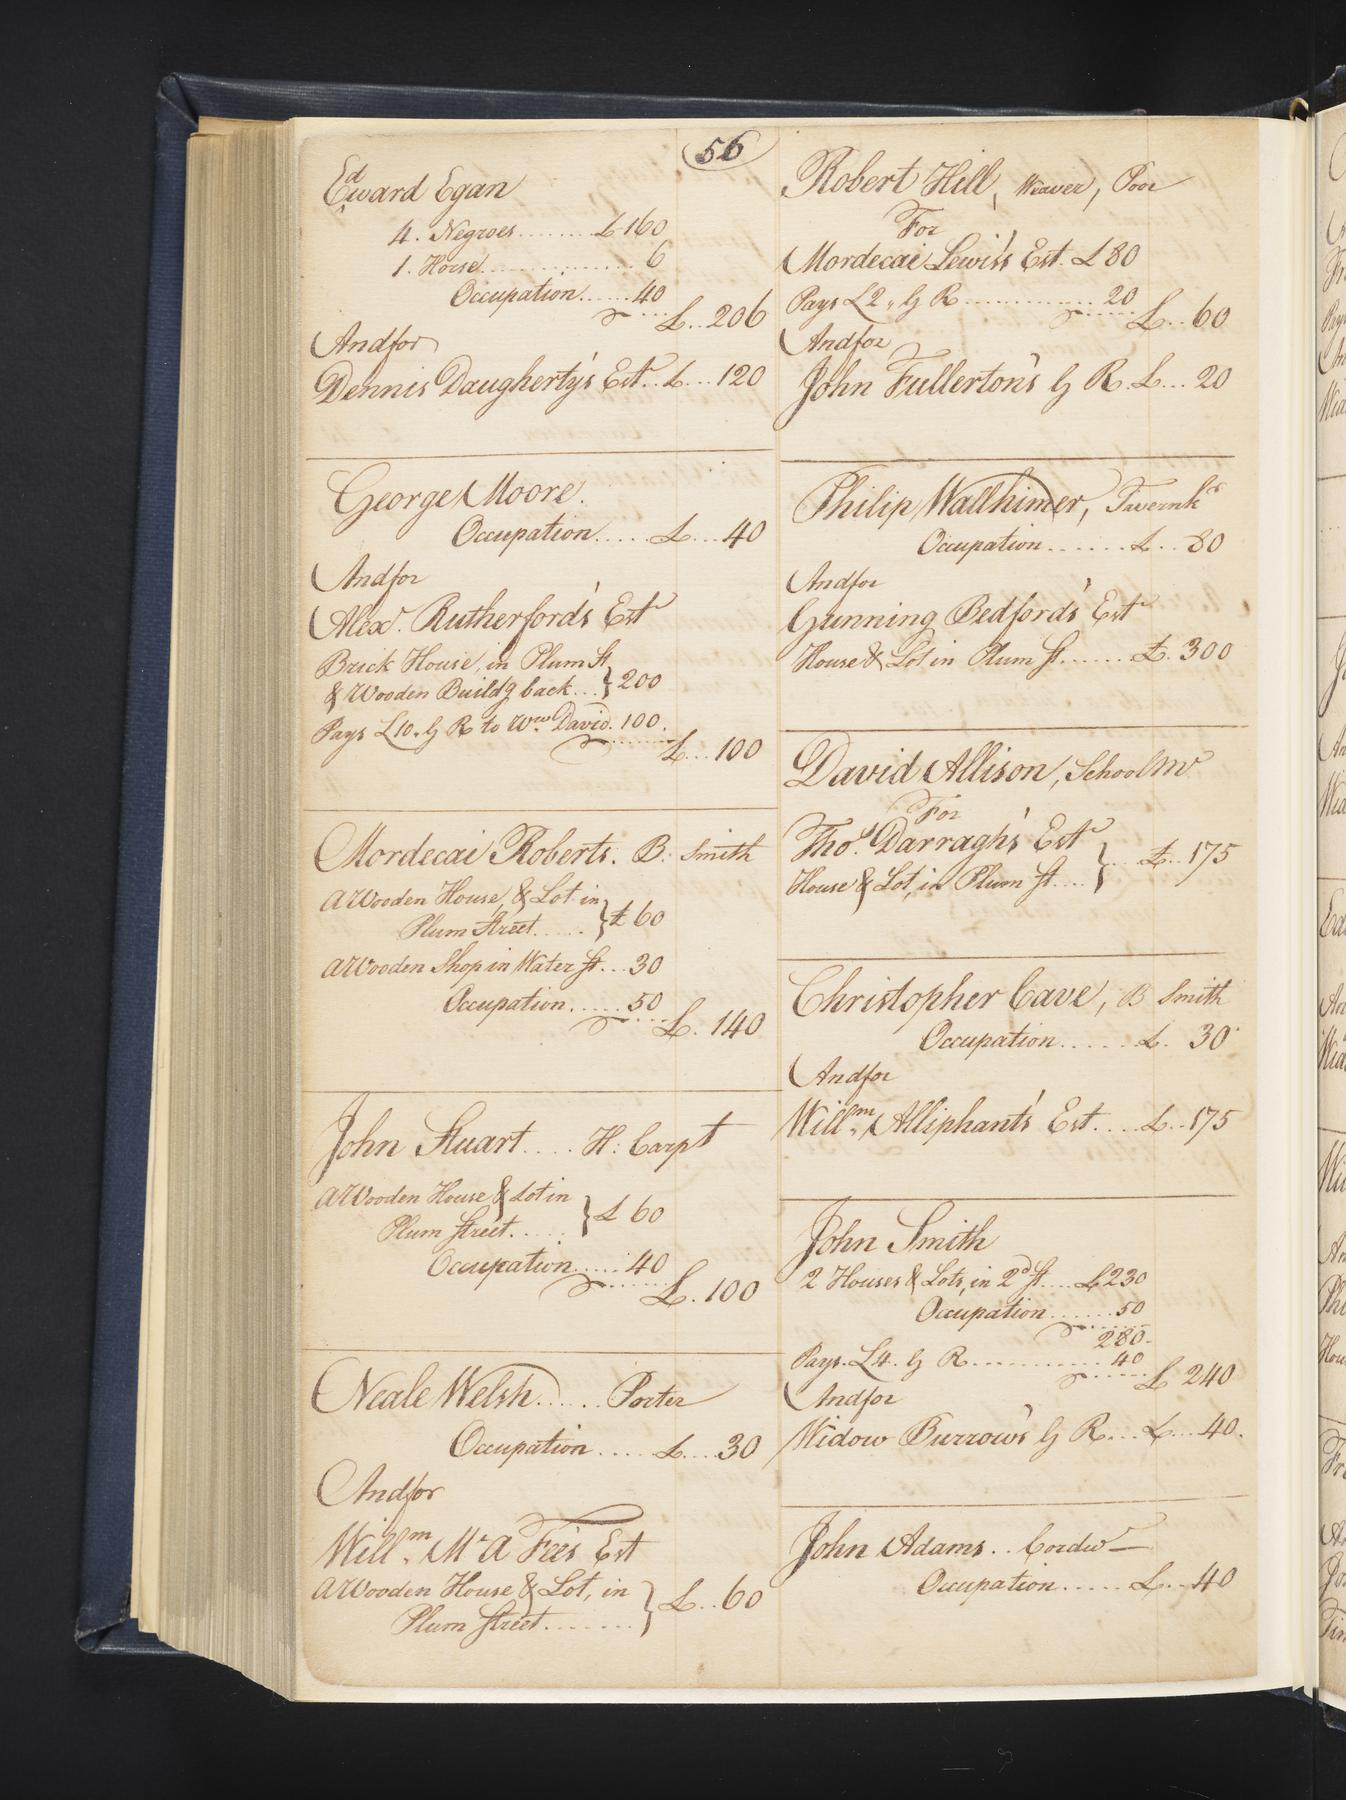 56
Edward Egan
4. Negroes........£160
1. Horse................6
Occupation......40
£..206
And for
Dennis Daugherty's Est..£...120
George Moore.
Occupation.....£...40
And for
Alexr. Rutherford's Estr
Brick House, in Plum St
& Wooden Buildg back...} 200
Pays £10,, G R to Wm. David. 100.
£...100
Mordecai Roberts. B. Smith
A Wooden House, & Lot in
Plum Street......} £ 60
A Wooden Shop in Water St...30
Occupation......50
£. 140
John Stuart.... H: Carpt
A Wooden House & Lot in
Plum Street......} £ 60
Occupation......40
£. 100
Neale Welsh...... Porter
Occupation.....£....30
And for
Willm. McA Fee's Est
A Wooden House & Lot, in
Plum Street........} £..60
Robert Hill, Weaver, Poor
For
Mordecai Lewis's Est. £80
Pays £2,, G R...............20
£..60
And for
John Fullerton's G R. £...20
Philip Wallhimer, Tavernkr
Occupation.......£...80
And for
Gunning Bedford's Estr
House & Lot in Plum St.......£.300
David Allison, School Mr
For
Thos. Darragh's Estr
House & Lot, in Plum St....}...£..175
Christopher Cave, B Smith
Occupation......£. 30
And for
Willm. Alliphant's Est....£..175
John Smith
2 Houses & Lots, in 2d St....£230
Occupation.......50
280-
Pays. £4. G R.............40
£ 240
And for
Widow Burrows's G R...£...40.
John Adams.. Cordwr
Occupation......£...40